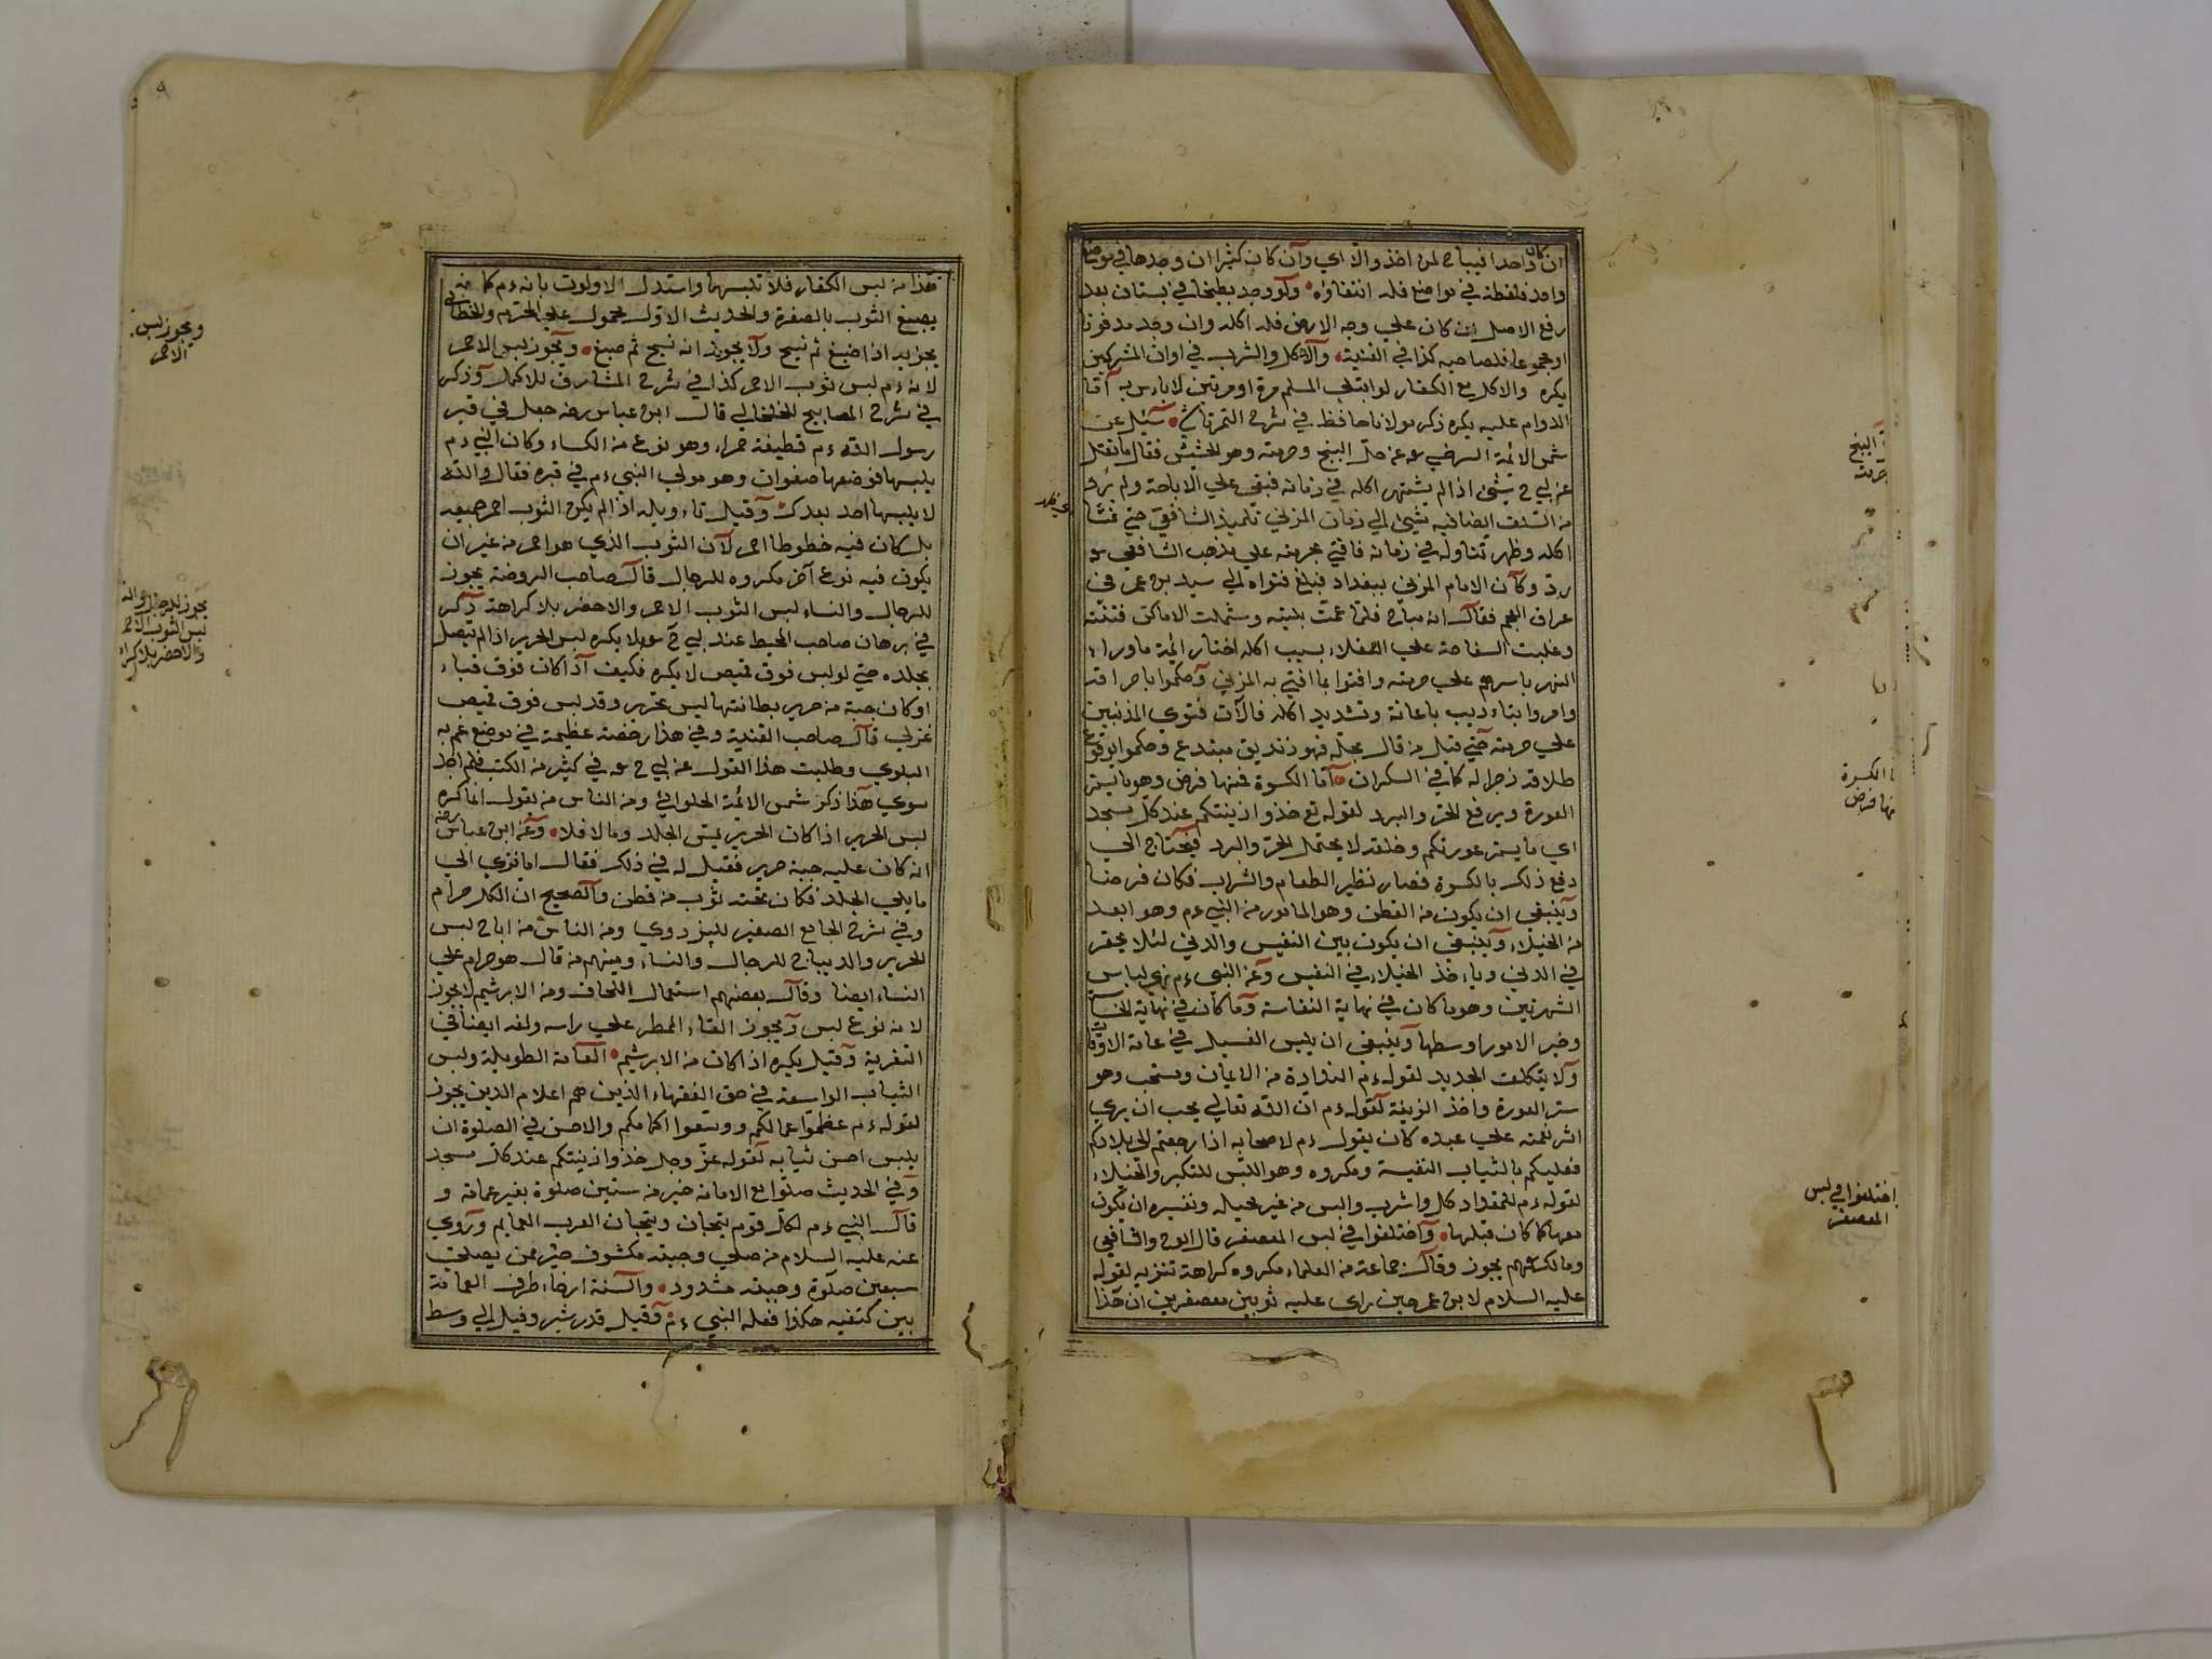 ان كان واحدا فيباح لمن اخذ والا اي وان كان كثيرا ان وجدها في موضع
واحد فلقطة في مواضع فله انتفاؤه ولو وجد بطيخا في بستان بعد
رفع الاصل ان كان علي وجه الارض فله اكله وان وجد مدفونا
او مجموعا فلصاحبه كذا في القنية والاكل والشرب في اوان المشركين
يكره والاكل مع الكفار لو ابتلي المسلم مرة او مرتين لا باءس به اما
الدوام عليه يكره ذكره مولانا حافظ في شرح التمرتاشي سئل عن
شمس الائمة السرخسي عن حل البنج وحرمته وهو الحشيش فقال ما نقل
عن ابي ح شئ اذ لم يشتهر اكله في زمانه فبقي علي الاباحة ولم يرد
من السلف ايضا فيه شئ الي زمان المزني تلميذ الشافعي حتي فشا
اكله وظهر تناوله في زمانه فافتي بحرمته علي مذهب الشافعي
وكان الامام المزني ببغداد فبلغ فتواه الي اسد بن عمر في
عراق العجم فقال انه مباح فلما عمت بليته وشملت الاماكن فتنته
وغلبت السفاهة علي العقلاء بسبب اكله اختار ائمة ماوراء
النهر باسرهم علي حرمته وافتوا بما افتي به المزني وحكموا باحراقه
وامروا بتاءديب باعانة وتشديد اكله فالآن فتوي المذهبين
علي حرمته حتي قيل من قال بحله فهو زنديق مبتدع وحكموا بوقوع
طلاقه زجرا له كما في السكران اما الكسوة فمنها فرض وهو ما يستر
العورة ويرفع الحر والبرد لقوله تع خذوا زينتكم عند كل مسجد
اي ما يستر عورتكم وخلقه لا يحتمل الحر والبرد فيحتاج الي
دفع ذلك بالكسوة فصار نظير الطعام والشراب فكان فرضا
وينبغي ان يكون من القطن وهو الماثور من النبي ءم وهو ابعد
من الخيلاء وينبغي ان يكون بين النفيس والدني لئلا يحقر
في الدني وياءخذ الخيلاء في النفيس وعن النبي ءم نهي لباس
الشهرتين وهو ما كان في نهاية النفاسة وما كان في نهاية الخساسة
وخير الامور اوسطها وينبغي ان يلبس الغسيل في عامة الاوقات
ولا يتكلف الجديد لقوله ءم البذاذة من الايمان ومستحب وهو
ستر العورة واخذ الزينة لقوله ءم ان الله تعالي يحب ان يري
اثر نعمته علي عبده كان يقول ءم لاصحابه اذا رجعتم الي بلادكم
فعليكم بالثياب النفيسة ومكروه وهو اللبس للتكبر والخيلاء
لقوله ءم للمقداد كل واشرب والبس من غير مخيلة وتفسيره ان يكون
معها كما كان قبلها واختلفوا في لبس المعصفر قال ابو ح والشافعي
ومالك يجوز وقال جماعة من العلماء مكروه كراهة تنزيه لقوله
عليه السلام لابن عمر حين راي عليه ثوبين معصفرين ان هذا
البنج
حرمته
الكسوة
منها فرض
اختلفوا في لبس
المعصفر
هذا من لبس الكفار فلا تلبسها واستدل الاولون بانه ءم كان
يصبغ الثوب بالصفرة والحديث الاول محمول علي المحرم والخطابي
يجوز به اذا صبغ ثم نسج ولا يجوز ان نسج ثم صبغ ويجوز لبس الاحمر
لانه ءم لبس ثوب الاحمر كذا في شرح المشارق للاكمل وذكر
في شرح المصابيح للخلخالي قال ابن عباس رضه جعل في قبر
رسول الله ءم قطيفة حمراء وهو نوع من الكساء وكان النبي ءم
يلبسها فوضعها صفوان وهو مولي النبي ءم في قبره فقال والله
لا يلبسها احد بعدك وقيل تاءويله اذا لم يكن الثوب احمر جميعه
بل كان فيه خطوطا احمر لان الثوب الذي هو احمر من غير ان
يكون فيه نوع آخر مكروه للرجال قال صاحب الروضة يجوز
للرجال والنساء لبس الثوب الاحمر والاخضر بلا كراهة ذكر
في برهان صاحب المحيط عند ابي ح لا يكره لبس الحرير اذا لم يتصل
بجلده حتي لو لبس فوق قميص لا يكره فكيف اذا كان فوق قباء
او كان جبة من حرير بطانتها ليس بحرير وقد لبس فوق قميص
غزلي قال صاحب القنية وفي هذا رخصة عظيمة في موضع عم به
البلوي وطلبت هذا القول عن ابي ح في كثير من الكتب فلم اجد
سوي هذا ذكر شمس الائمة الحلوائي ومن الناس من يقول انما كره
لبس الحرير اذا كان الحرير يمس الجلد وما لا فلا وعن ابن عباس رضه
انه كان عليه جبة حرير فقيل له في ذلك فقال اما تري الي
ما يلي الجلد فكان تحته ثوب من قطن والصحيح ان الكل حرام
وفي شرح الجامع الصغير للبزدوي ومن الناس من اباح لبس
الحرير والديباج للرجال والنساء ومنهم من قال هو حرام علي
النساء ايضا وقال بعضهم استعمال اللحاف ومن الابرشيم لا يجوز
لانه نوع لبس ويجوز القاء المطر علي راسه ولفه ايضا في
التفرية وقيل يكره اذا كان من الابرشيم العمامة الطويلة ولبس
الثياب الواسعة في حق الفقهاء الذين هم اعلام الدين يجوز
لقوله ءم عظموا عمائكم ووسعوا اكمامكم والاحسن في الصلوة ان
يلبس احسن ثيابه لقوله عز وجل خذوا زينتكم عند كل مسجد
وفي الحديث صلوة مع الامامة خير من ستين صلوة بغير عمامة و
قال النبي ءم لكل قوم تيجان وتيجان العرب العمايم وروي
عنه عليه السلام من صلي وجبته مكشوف خير ممن يصلي
سبعين صلوة وجبته مشدود والسنة ارخاء طرف العمامة
بين كتفيه هكذا فعله النبي ءم وقيل قدر شبر وقيل الي وسط
ويجوز لبس
الاحمر
يجوز للرجال والنساء
لبس الثوب الاحمر
والاخضر بلا كراهة